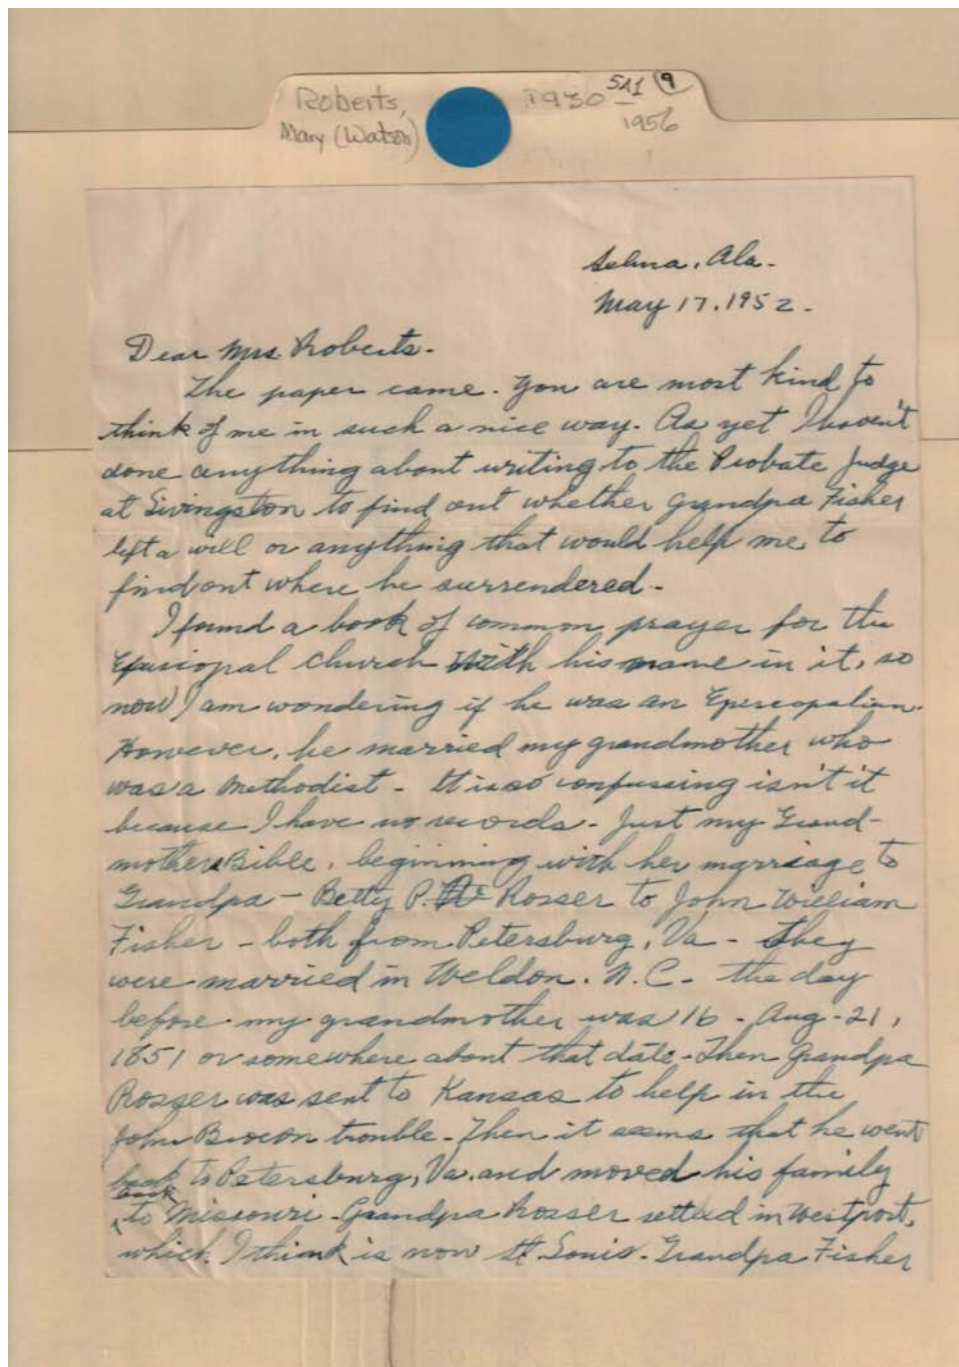 Roberts,
Mary (Watson)
1930 –
1956
5A1 9
Selma, Ala.
May 17, 1952.
Dear Mrs. Roberts.
The paper came. You are most kind to
think of me in such a nice way. As yet I haven't
done anything about writing to the Probate Judge
at Livingston to find out whether Grandpa Fisher
left a will or anything that would help me to
find out where he surrendered.
I found a book of common prayer for the
Episcopal church with his name in it, so
now I am wondering if he was an Episcopalian.
However, he married my grandmother who
was a Methodist - It is so confusing isn't it
because I have no records - Just my Grand-
mothers Bible, beginning with her marriage to
Grandpa - Betty P. Rosser to John William
Fisher - both from Petersburg, Va - They
were married in Weldon. N.C. - the day
before my grandmother was 16 - Aug - 21,
1851 or somewhere about that date - Then Grandpa
Rosser was sent to Kansas to help in the
John Brown trouble - Then it seems that he went
back to Petersburg, Va. and moved his family
back to Missouri - Grandpa Rosser settled in Westport,
which I think is now St Louis - Grandpa Fisher